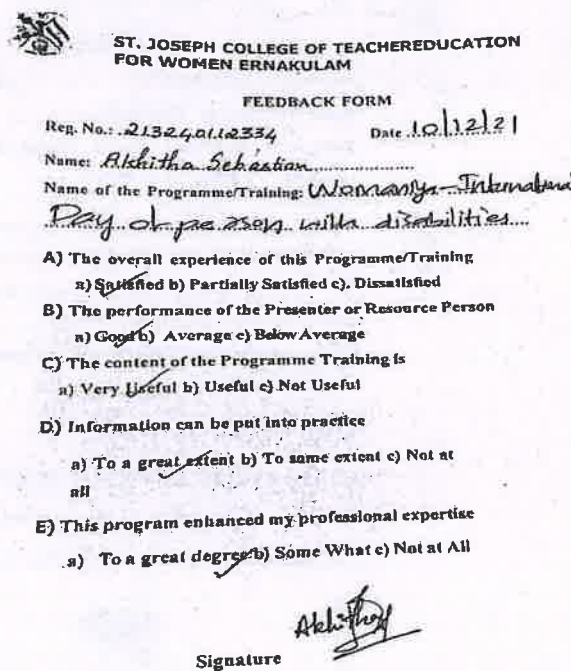 ST. JOSEPH COLLEGE OF TEACHEREDUCATION
FOR WOMEN ERNAKULAM
FEEDBACK FORM
Reg. No.: 213240112334 Date 10/12/21
Name: Akhitha Sebastian
Name of the Programme/Training: Womaniya - International
Day of person with disabilities
A) The overall experience of this Programme/Training
a) Satisfied b) Partially Satisfied c). Dissatisfied
B) The performance of the Presenter or Resource Person
a) Good b) Average c) Below Average
C) The content of the Programme Training is
a) Very Useful b) Useful c) Not Useful
D) Information can be put into practice
a) To a great extent b) To some extent c) Not at
all
E) This program enhanced my professional expertise
a) To a great degree b) Some What c) Not at All
Signature